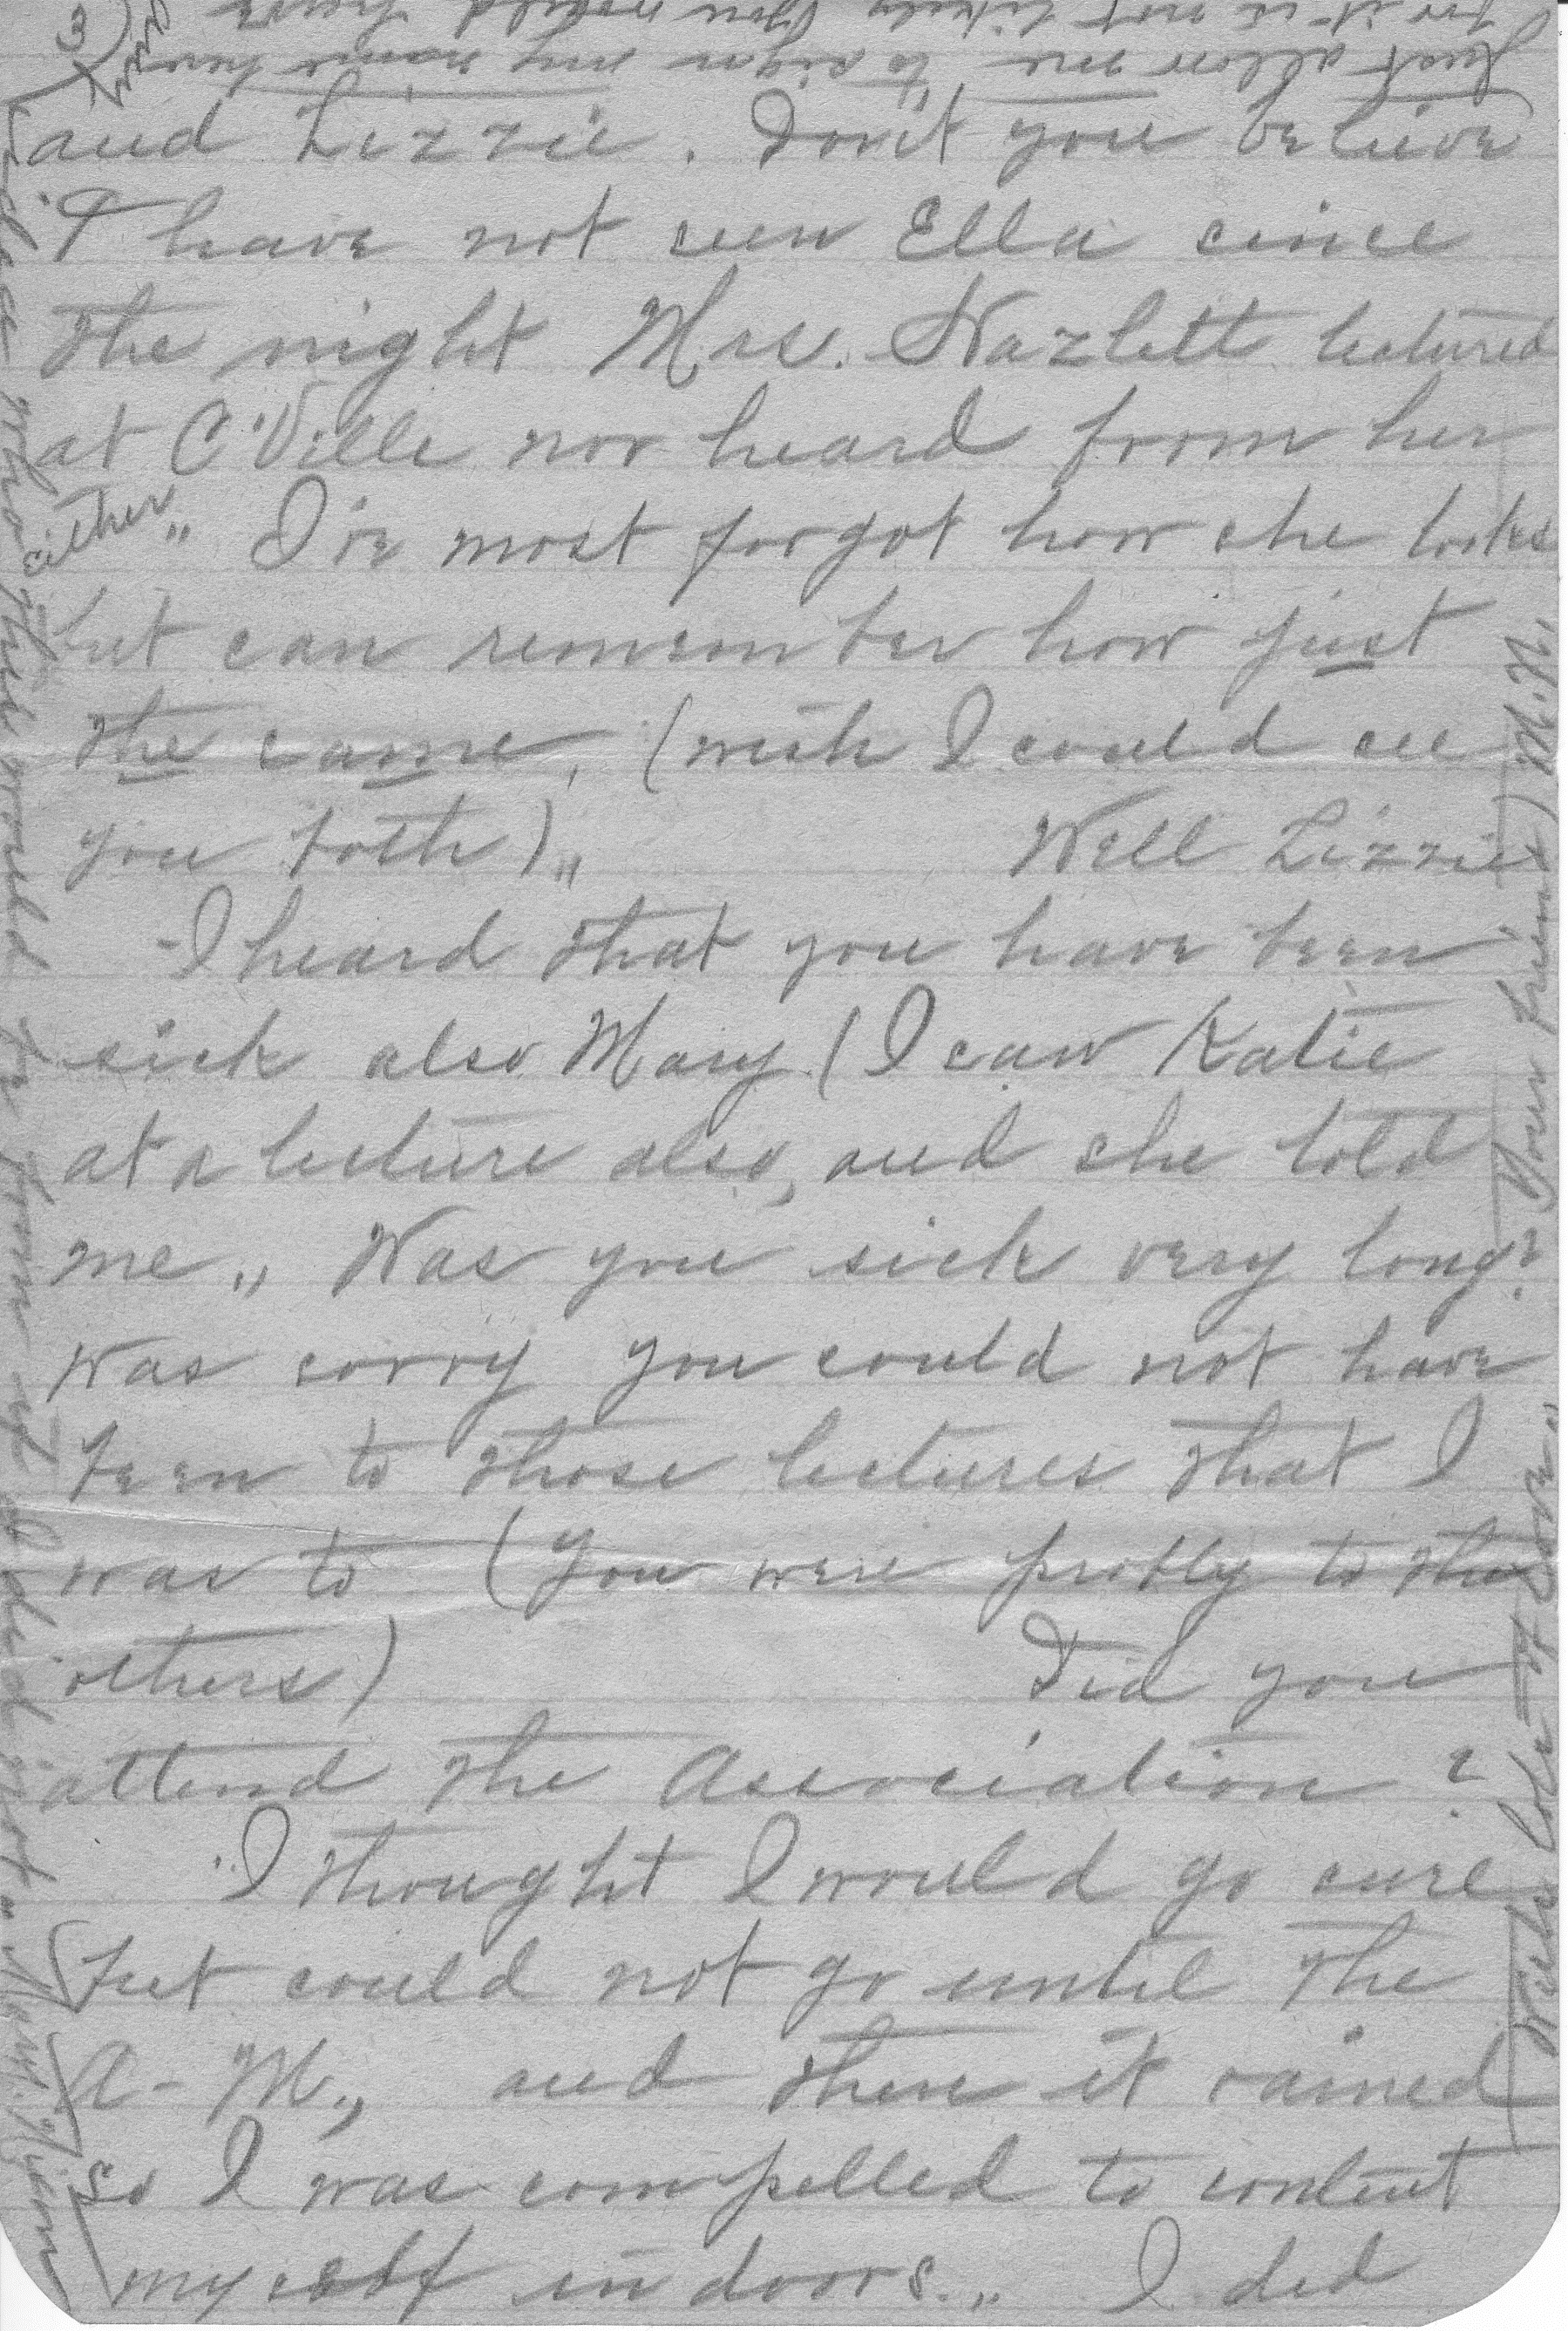 3)
and Lizzie. Don't you believe
I have not seen Ella since
the night Mrs. Hazlett lectured
at C'Ville nor heard from her
either„ I've most forgot how she looks
but can remember how just
the same, (wish I could see
you both)„ Well Lizzie
I heard that you have been
sick also Mary (I saw Katie
at a lecture also, and she told
me„ Was you sick very long?
Was sorry you could not have
been to those lectures that I
was to (You were probly to the
others) Did you
attend the Association?
I thought I would go sure
but could not go until the
A-M., and then it rained
so I was compelled to content
myself in doors.„ I did
Just allow me to sign my name here
for it is not likely you would have
who this would be from if I did not„
With lots of Love„
Your friend) M.N.